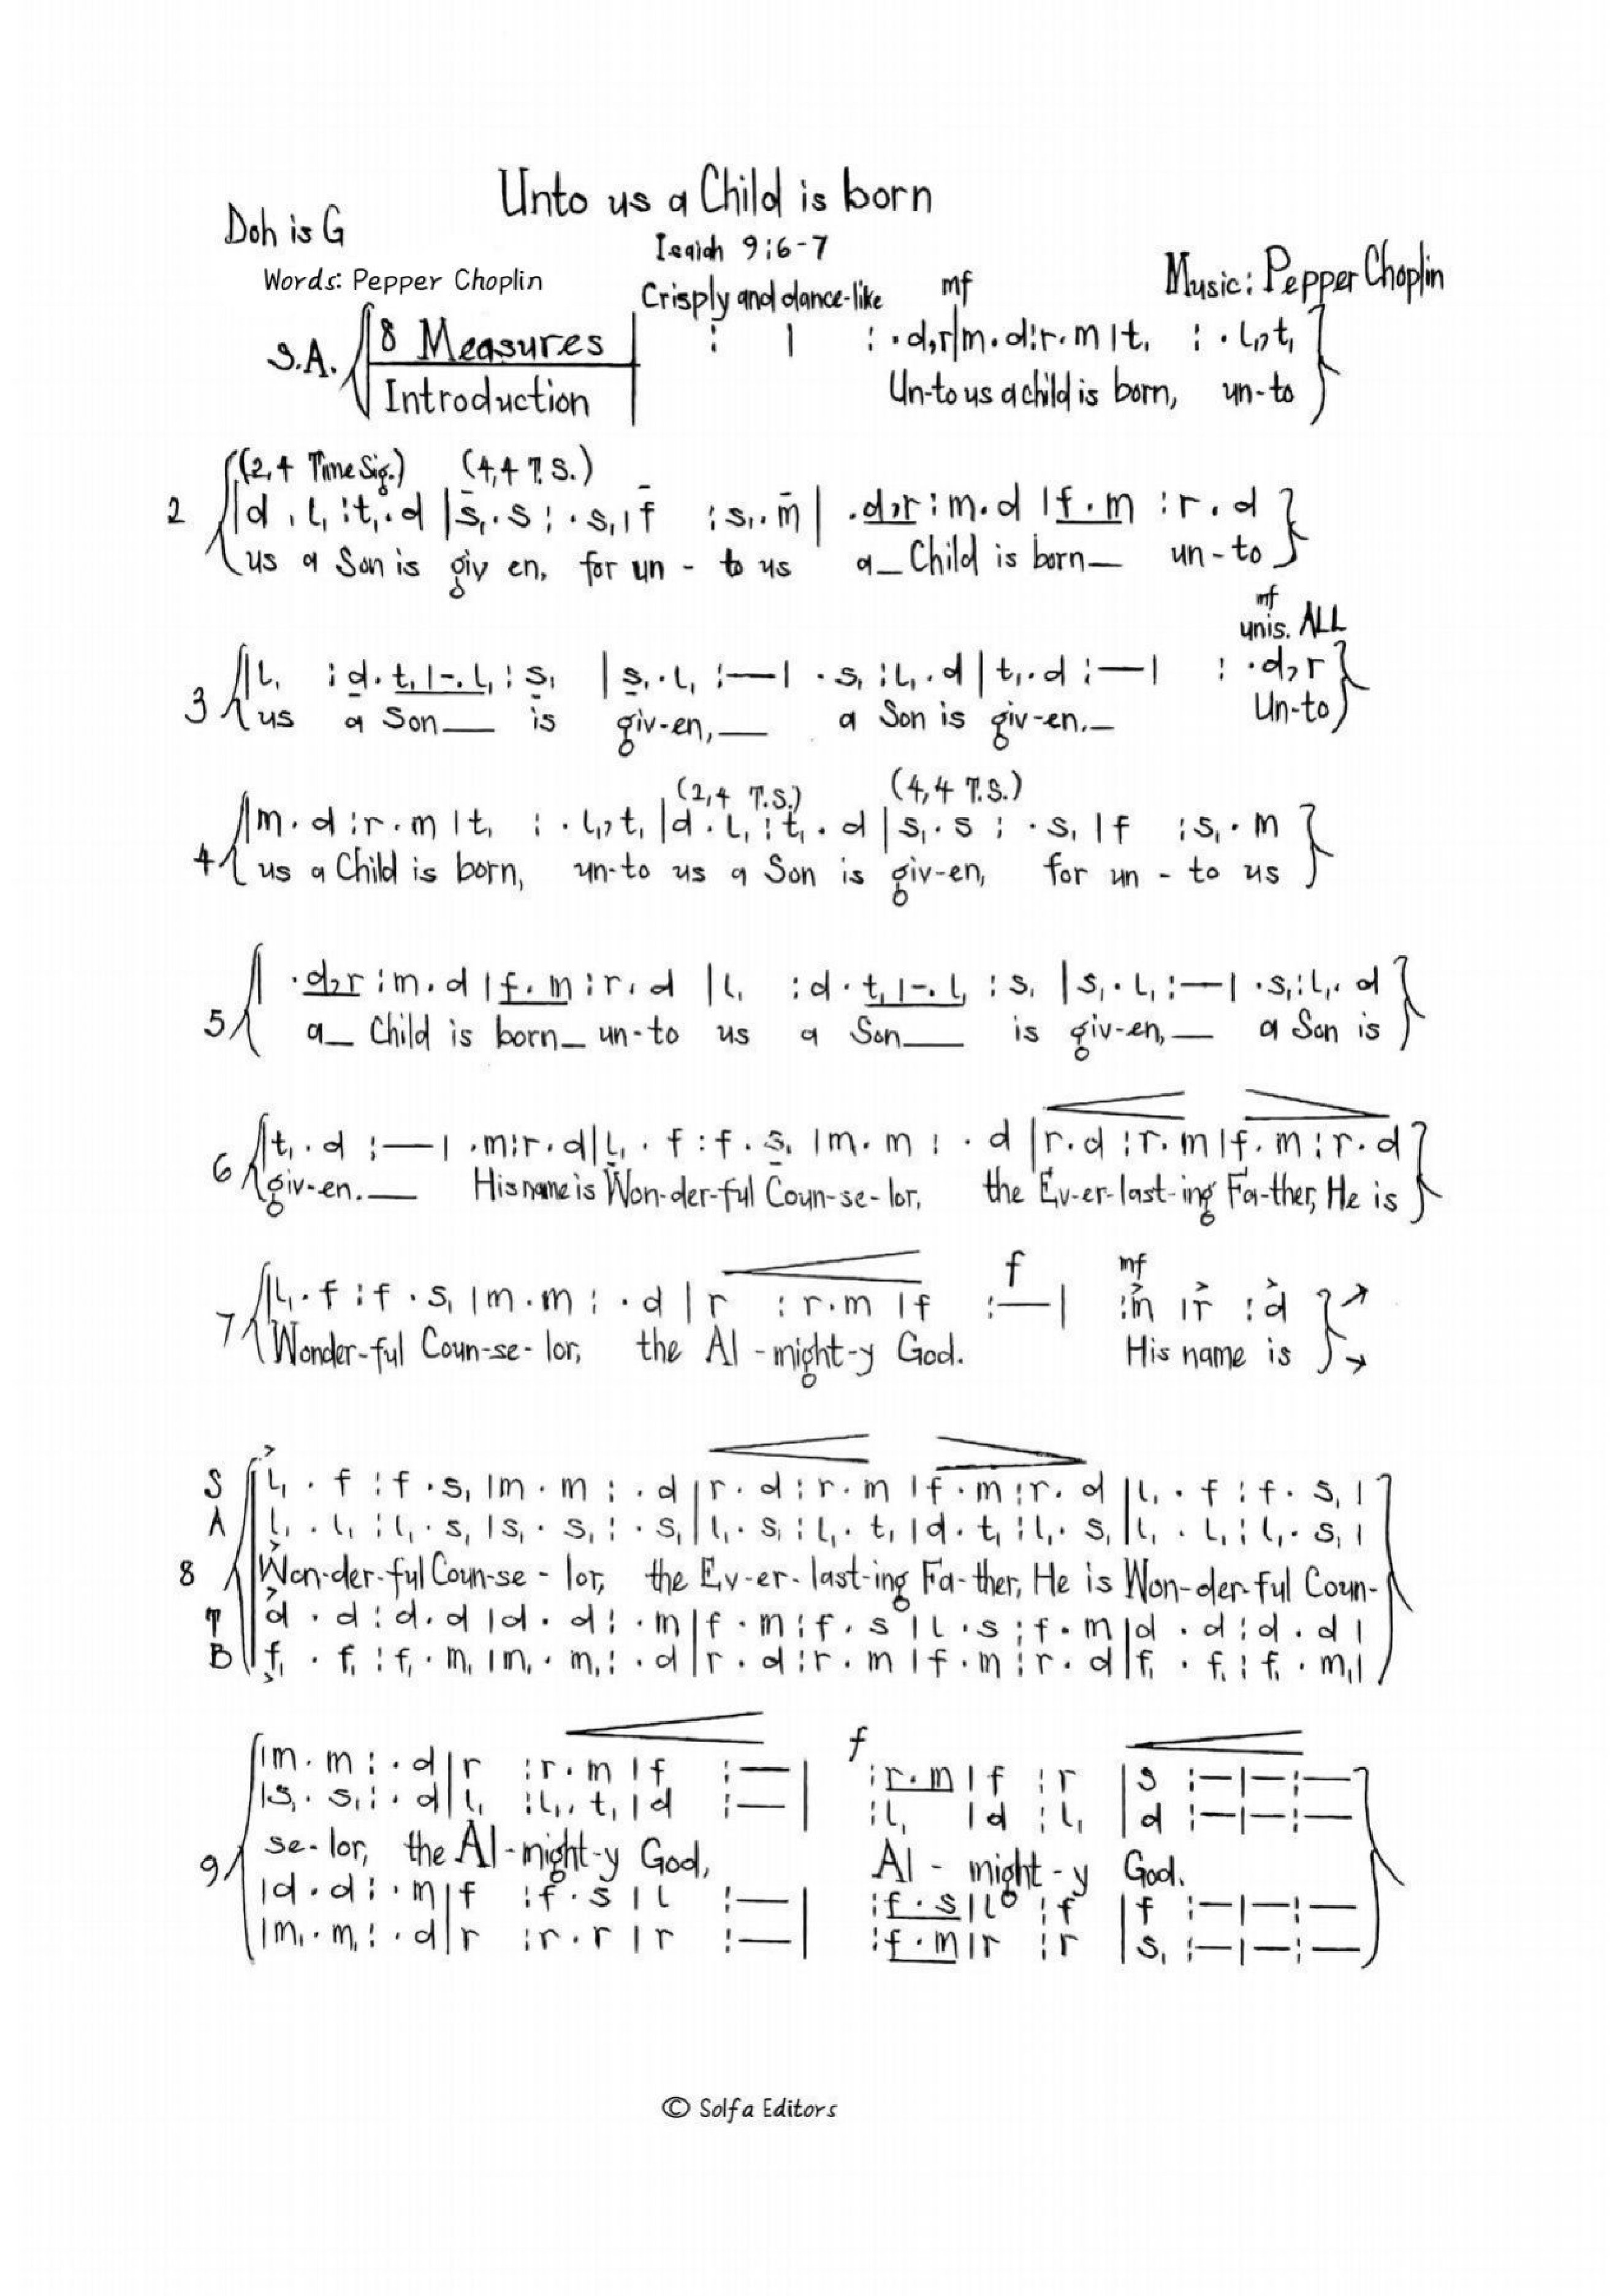 Unto us a Child is born
Doh is G
Isaiah 9:6-7
Words: Pepper Choplin
Music: Pepper Choplin
Crisply and dance-like mf
S.A. 8 Measures : | : . d,r|m . d:r . m|t, : . l,,t,
Introduction Un-to us a child is born, un-to
(2,4 Time Sig.) (4,4 T.S.)
2 |d . l, :t, . d |s, . s : . s,|f :s, . m| . d,r :m . d |f . m :r . d
us a Son is giv en, for un - to us a_ Child is born_ un-to
mf
unis. ALL
3 |l, :d . t,|- . l, :s, |s, . l, :—| . s, :l, . d |t, . d :—| : . d,r
us a Son__ is giv-en,__ a Son is giv-en._ Un-to
(2,4 T.S.) (4,4 T.S.)
4 |m . d :r . m |t, : . l,,t, |d . l, :t, . d |s, . s : . s, |f :s, . m
us a Child is born, un-to us a Son is giv-en, for un - to us
5 | . d,r :m . d |f . m :r . d |l, :d . t,|- . l, :s, |s, . l, :—| . s, :l, . d
a_ Child is born_ un-to us a Son__ is giv-en,__ a Son is
6 |t, . d :—| . m:r . d|l, . f :f . s, |m . m : . d |r . d :r . m |f . m :r . d
giv-en.__ His name is Won-der-ful Coun-se-lor, the Ev-er-last-ing Fa-ther, He is
f mf
7 |l, . f :f . s, |m . m : . d |r :r . m |f :—| :m |r :d
Wonder-ful Coun-se-lor, the Al-might-y God. His name is
S |l, . f :f . s, |m . m : . d |r . d :r . m |f . m :r . d |l, . f :f . s, |
A |l, . l, :l, . s, |s, . s, : . s, |l, . s, :l, . t, |d . t, :l, . s, |l, . l, :l, . s, |
8 Won-der-ful Coun-se-lor, the Ev-er-last-ing Fa-ther, He is Won-der-ful Coun-
T |d . d :d . d |d . d : . m |f . m :f . s |l . s :f . m |d . d :d . d |
B |f, . f, :f, . m, |m, . m, : . d |r . d :r . m |f . m :r . d |f, . f, :f, . m, |
f
|m . m : . d |r :r . m |f :—| :r . m |f :r |s :—|—:—
|s, . s, : . d |l, :l, . t, |d :—| :l, |d :l, |d :—|—:—
9 se-lor, the Al-might-y God, Al - might-y God.
|d . d : . m |f :f . s |l :—| :f . s |l :f |f :—|—:—
|m, . m, : . d |r :r . r |r :—| :f . m |r :r |s, :—|—:—
© Solfa Editors